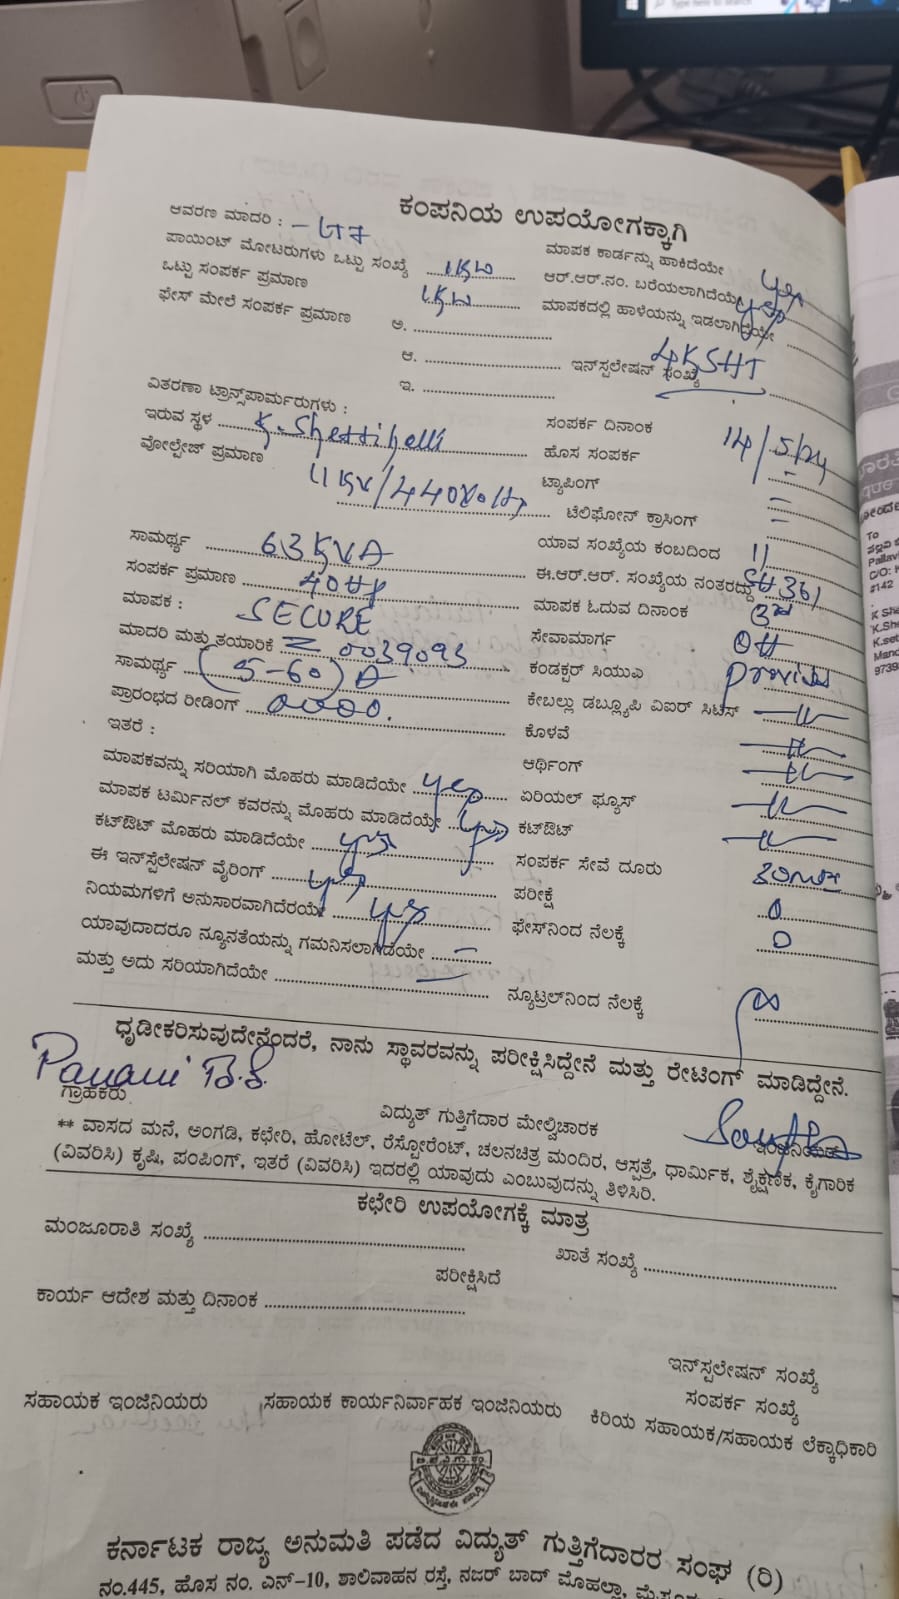 ಕಂಪನಿಯ ಉಪಯೋಗಕ್ಕಾಗಿ
ಆವರಣ ಮಾದರಿ : - LT7
ಪಾಯಿಂಟ್ ಮೋಟರುಗಳು ಒಟ್ಟು ಸಂಖ್ಯೆ 1KW
ಒಟ್ಟು ಸಂಪರ್ಕ ಪ್ರಮಾಣ 1KW
ಫೇಸ್ ಮೇಲೆ ಸಂಪರ್ಕ ಪ್ರಮಾಣ ಅ.
ಆ.
ಇ.
ಮಾಪಕ ಕಾರ್ಡನ್ನು ಹಾಕಿದೆಯೇ yes
ಆರ್.ಆರ್.ನಂ. ಬರೆಯಲಾಗಿದೆಯೇ yes
ಮಾಪಕದಲ್ಲಿ ಹಾಳೆಯನ್ನು ಇಡಲಾಗಿದೆಯೇ
ಇನ್‌ಸ್ಪಲೇಷನ್ ಸಂಖ್ಯೆ 4KSHT
ವಿತರಣಾ ಟ್ರಾನ್ಸ್‌ಪಾರ್ಮರುಗಳು :
ಇರುವ ಸ್ಥಳ K.Shettihalli
ವೋಲ್ಟೇಜ್ ಪ್ರಮಾಣ 11KV/440Volts
ಸಾಮರ್ಥ್ಯ 63KVA
ಸಂಪರ್ಕ ಪ್ರಮಾಣ 40HP
ಮಾಪಕ : SECURE
ಮಾದರಿ ಮತ್ತು ತಯಾರಿಕೆ Z 0039093
ಸಾಮರ್ಥ್ಯ (5-60)A
ಪ್ರಾರಂಭದ ರೀಡಿಂಗ್ 0000.
ಇತರೆ :
ಮಾಪಕವನ್ನು ಸರಿಯಾಗಿ ಮೊಹರು ಮಾಡಿದೆಯೇ yes
ಮಾಪಕ ಟರ್ಮಿನಲ್ ಕವರನ್ನು ಮೊಹರು ಮಾಡಿದೆಯೇ yes
ಕಟ್‌ಔಟ್ ಮೊಹರು ಮಾಡಿದೆಯೇ yes
ಈ ಇನ್‌ಸ್ಪಲೇಷನ್ ವೈರಿಂಗ್ yes
ನಿಯಮಗಳಿಗೆ ಅನುಸಾರವಾಗಿದೆರಯೇ yes
ಯಾವುದಾದರೂ ನ್ಯೂನತೆಯನ್ನು ಗಮನಿಸಲಾಗಿಡೆಯೇ -
ಮತ್ತು ಅದು ಸರಿಯಾಗಿದೆಯೇ -
ಸಂಪರ್ಕ ದಿನಾಂಕ 14/5/24
ಹೊಸ ಸಂಪರ್ಕ -
ಟ್ಯಾಪಿಂಗ್ -
ಟೆಲಿಫೋನ್ ಕ್ರಾಸಿಂಗ್ -
ಯಾವ ಸಂಖ್ಯೆಯ ಕಂಬದಿಂದ 11
ಈ.ಆರ್.ಆರ್. ಸಂಖ್ಯೆಯ ನಂತರದ್ದು SH361
ಮಾಪಕ ಓದುವ ದಿನಾಂಕ 3rd
ಸೇವಾಮಾರ್ಗ OH
ಕಂಡಕ್ಟರ್ ಸಿಯುಎ
ಕೇಬಲ್ಲು ಡಬ್ಲ್ಯೂಪಿ ಎಐರ್ ಸಿಟಿಸ್ -11-
ಕೊಳವೆ -11-
ಆರ್ಥಿಂಗ್ -11-
ಏರಿಯಲ್ ಫ್ಯೂಸ್ -11-
ಕಟ್‌ಔಟ್ -11-
ಸಂಪರ್ಕ ಸೇವೆ ದೂರು
ಪರೀಕ್ಷೆ
ಫೇಸ್‌ನಿಂದ ನೆಲಕ್ಕೆ 0
0
ನ್ಯೂಟ್ರಲ್‌ನಿಂದ ನೆಲಕ್ಕೆ
ಧೃಡೀಕರಿಸುವುದೇನೆಂದರೆ, ನಾನು ಸ್ಥಾವರವನ್ನು ಪರೀಕ್ಷಿಸಿದ್ದೇನೆ ಮತ್ತು ರೇಟಿಂಗ್ ಮಾಡಿದ್ದೇನೆ.
B.S.
ಗ್ರಾಹಕರು ವಿದ್ಯುತ್ ಗುತ್ತಿಗೆದಾರ ಮೇಲ್ವಿಚಾರಕ
** ವಾಸದ ಮನೆ, ಅಂಗಡಿ, ಕಛೇರಿ, ಹೋಟೆಲ್, ರೆಸ್ಟೋರೆಂಟ್, ಚಲನಚಿತ್ರ ಮಂದಿರ, ಆಸ್ಪತ್ರೆ, ಧಾರ್ಮಿಕ, ಶೈಕ್ಷಣಿಕ, ಕೈಗಾರಿಕ
(ವಿವರಿಸಿ) ಕೃಷಿ, ಪಂಪಿಂಗ್, ಇತರೆ (ವಿವರಿಸಿ) ಇದರಲ್ಲಿ ಯಾವುದು ಎಂಬುವುದನ್ನು ತಿಳಿಸಿರಿ.
ಕಛೇರಿ ಉಪಯೋಗಕ್ಕೆ ಮಾತ್ರ
ಮಂಜೂರಾತಿ ಸಂಖ್ಯೆ ಖಾತೆ ಸಂಖ್ಯೆ
ಪರೀಕ್ಷಿಸಿದೆ
ಕಾರ್ಯ ಆದೇಶ ಮತ್ತು ದಿನಾಂಕ
ಇನ್‌ಸ್ಪಲೇಷನ್ ಸಂಖ್ಯೆ
ಸಂಪರ್ಕ ಸಂಖ್ಯೆ
ಸಹಾಯಕ ಇಂಜಿನಿಯರು ಸಹಾಯಕ ಕಾರ್ಯನಿರ್ವಾಹಕ ಇಂಜಿನಿಯರು ಕಿರಿಯ ಸಹಾಯಕ/ಸಹಾಯಕ ಲೆಕ್ಕಾಧಿಕಾರಿ
ಕರ್ನಾಟಕ ರಾಜ್ಯ ಅನುಮತಿ ಪಡೆದ ವಿದ್ಯುತ್ ಗುತ್ತಿಗೆದಾರರ ಸಂಘ (ರಿ)
ನಂ.445, ಹೊಸ ನಂ. ಎನ್-10, ಶಾಲಿವಾಹನ ರಸ್ತೆ, ನಜರ್ ಬಾದ್ ಮೊಹಲ್ಲಾ,
To
C/O:
#142